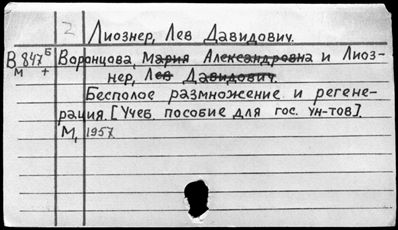 2 Лиознер, Лев Давидович.
В 847б Воронцова, Мария Александровна и Лиоз-
м + нер, Лев Давидович.
Бесполое размножение и регене-
рация. [Учеб. пособие для гос. ун-тов].
М, 1957